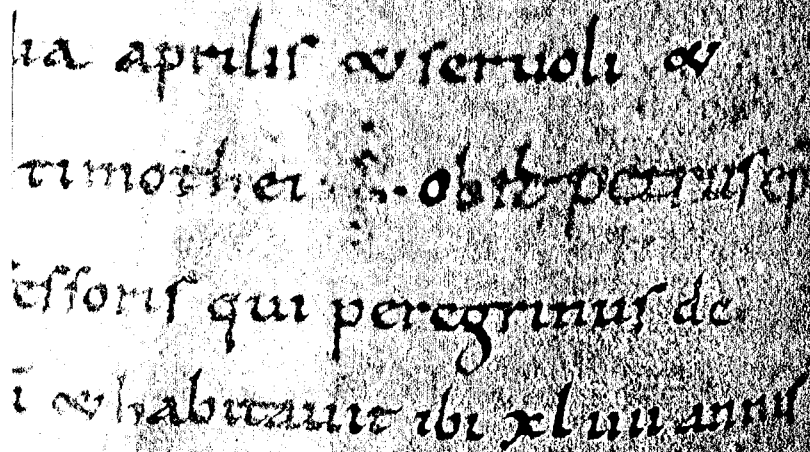 lia aprilis & seruoli &
timothei obiit petrus ep
essoris qui peregrinus de
i & habitauit ibi xl uiii annis